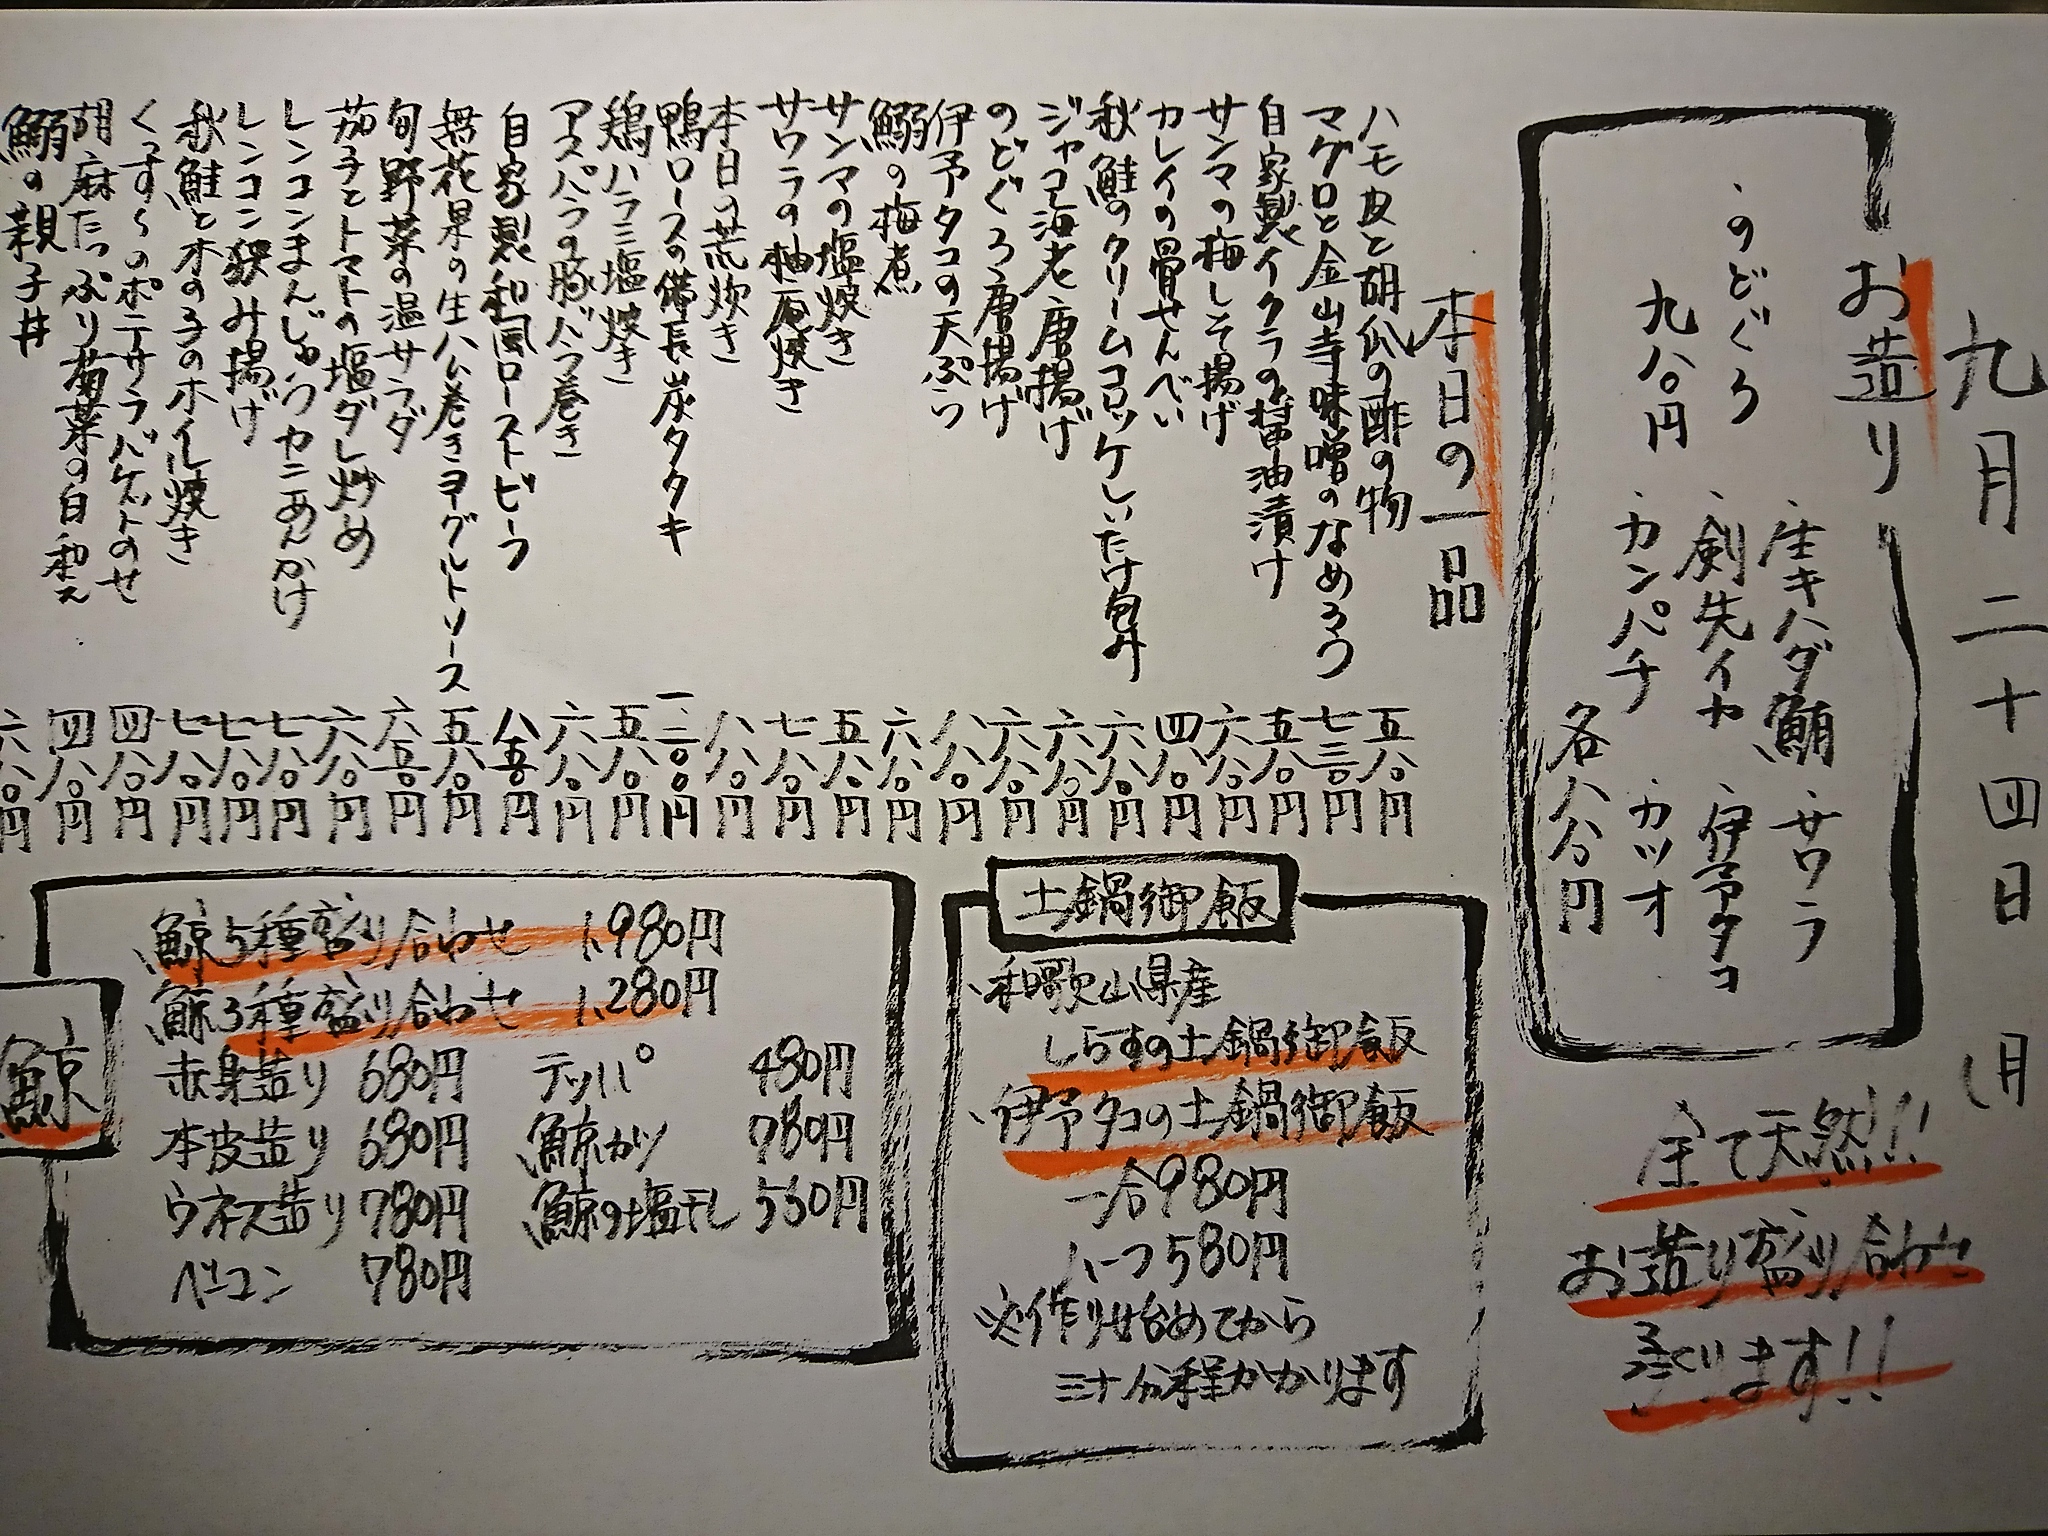 九月二十四日(月
お造り
・のどぐろ
九八〇円
・生キハダ鮪
・サワラ
・剣先イカ
・伊予タコ
・カンパチ
・カツオ
各八八〇円
全て天然!!
お造り盛り合わせ
承ります!!
本日の一品
ハモ皮と胡瓜の酢の物 五八〇円
マグロと金山寺味噌のなめろう 七三〇円
自家製イクラの醤油漬け 五八〇円
サンマの梅しそ揚げ 六八〇円
カレイの骨せんべい 四八〇円
秋鮭のクリームコロッケしいたけ包み 六八〇円
ジャコ海老唐揚げ 六八〇円
のどぐろ唐揚げ 六八〇円
伊予タコの天ぷら 八八〇円
鰯の梅煮 六八〇円
サンマの塩焼き 五八〇円
サワラの柚庵焼き 七八〇円
本日の荒炊き 八八〇円
鴨ロースの備長炭タタキ 一、二〇〇円
鶏ハラミ塩焼き 五八〇円
アスパラの豚バラ巻き 六八〇円
自家製和風ローストビーフ 八五〇円
無花果の生ハム巻きヨーグルトソース 五八〇円
旬野菜の温サラダ 六五〇円
茄子とトマトの塩ダレ炒め 六八〇円
レンコンまんじゅうカニあんかけ 七八〇円
レンコン挟み揚げ 七八〇円
秋鮭と木の子のホイル焼き 七八〇円
くっす〜のポテサラバゲットのせ 四八〇円
胡麻たっぷり菊菜の白和え 四八〇円
鰯の親子丼 六八〇円
土鍋御飯
・和歌山県産
しらすの土鍋御飯
・伊予タコの土鍋御飯
一合980円
ハーフ580円
※作り始めてから
三十分程かかります
鯨
鯨5種盛り合わせ 1,980円
鯨3種盛り合わせ 1,280円
赤身造り 680円 テッパ° 480円
本皮造り 680円 鯨カツ 780円
ウネス造り 780円 鯨の塩干し 550円
ベーコン 780円